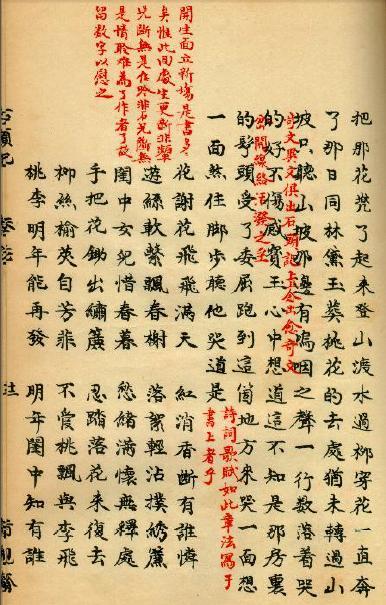 開生面立新塲是書多多
矣惟此回處生更新非顰
兒斷無是佳吟非石兄斷無
是情聆難為了作者了故
留数字以慰之
把那花兜了起來登山渡水過柳穿花一直奔
了那日同林黛玉葬桃花的去處猶未轉過山
坡只聽山坡那邊有嗚咽之聲一行数落着哭
的好不傷感寳玉心中想道這不知是那房裏
詩文俱出石頭記上念出念奇文
活潑之至
的丫頭受了委屈跑到這個地方來哭一面想
一面煞住脚步聽他哭道是
詩詞歌賦如此章法寫于
書上者乎
花謝花飛飛滿天 紅消香斷有誰憐
遊絲軟繫飄春榭 落絮輕沾撲綉簾
閨中女兒惜春暮 愁緒滿懷無釋處
手把花鋤出繡簾 忍踏落花來復去
柳絲榆莢自芳菲 不爱桃飄與李飛
桃李明年能再發 明年閨中知有誰
石頭記 脂硯齋